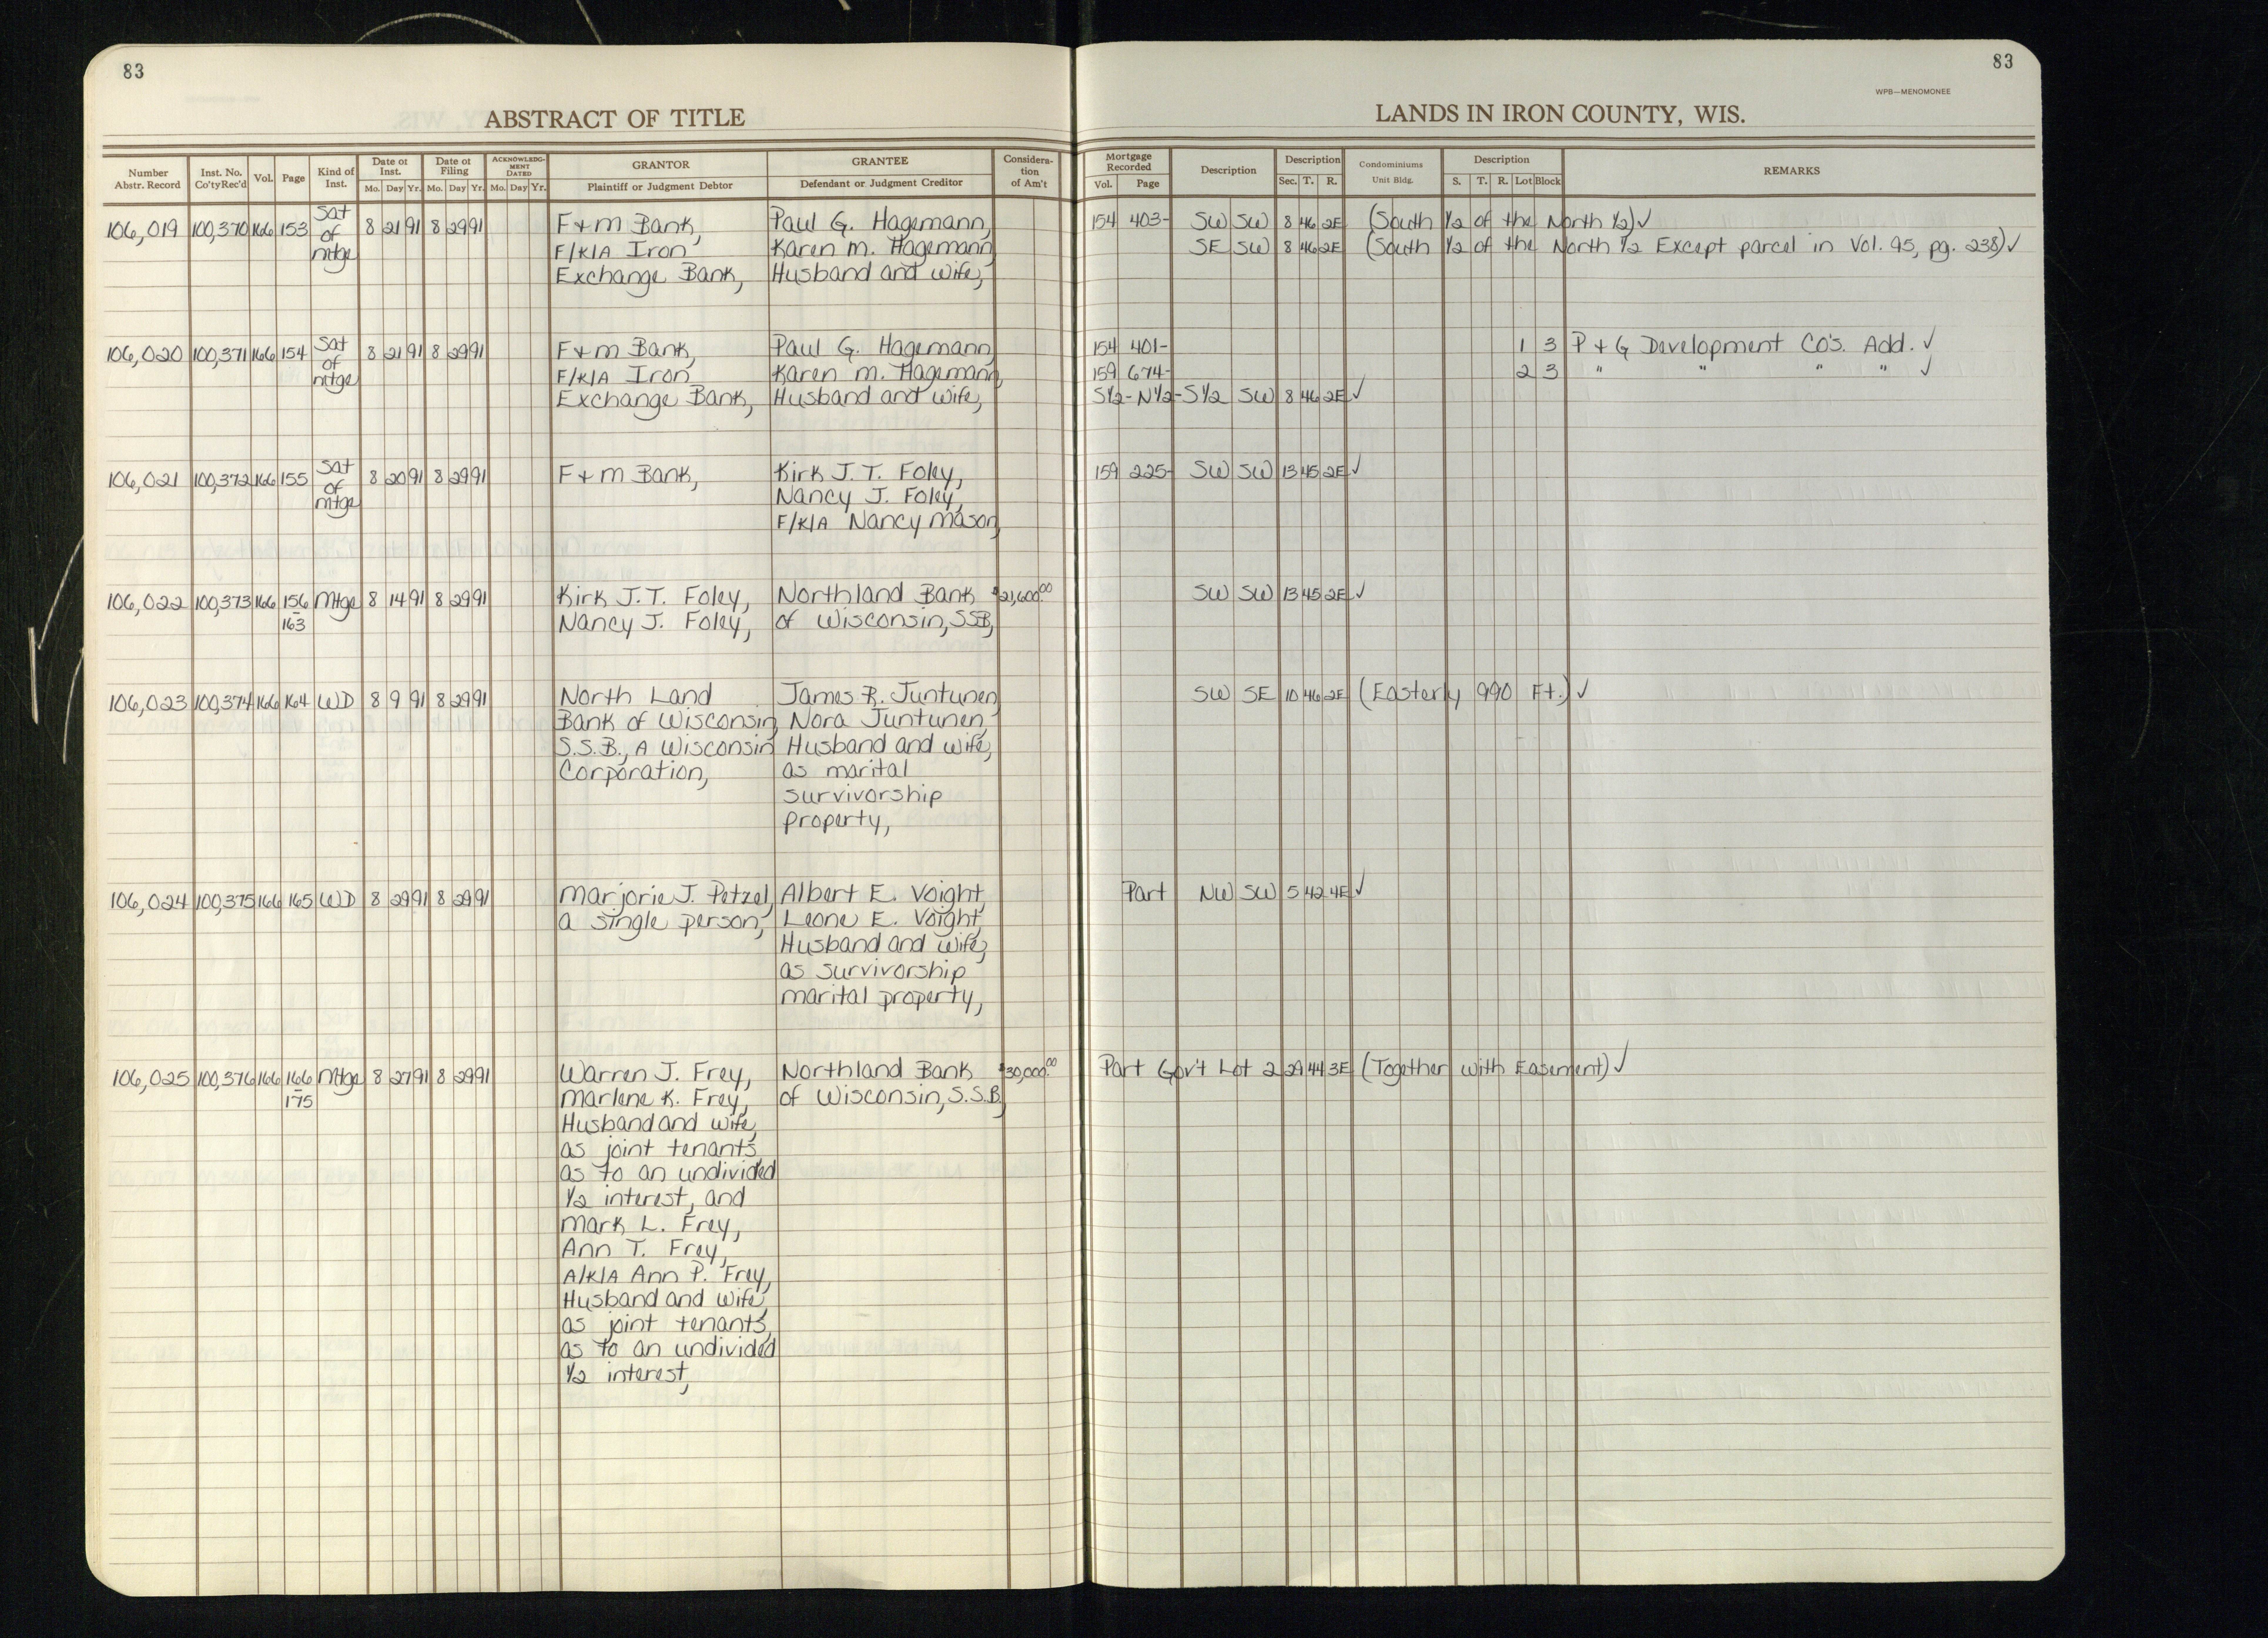 83
83
WPB—MENOMONEE
ABSTRACT OF TITLE
LANDS IN IRON COUNTY, WIS.
Number Abstr. Record | Inst. No. Co'ty Rec'd | Vol. | Page | Kind of Inst. | Date of Inst. Mo. Day Yr. | Date of Filing Mo. Day Yr. | ACKNOWLEDGMENT DATED Mo. Day Yr. | GRANTOR Plaintiff or Judgment Debtor | GRANTEE Defendant or Judgment Creditor | Consideration of Am't | Mortgage Recorded Vol. Page | Description | Description Sec. T. R. | Condominiums Unit Bldg. | Description S. T. R. Lot Block | REMARKS
106,019 100,370 166 153 Sat of mtge 8 21 91 8 29 91 F+M Bank, Paul G. Hagemann, 154 403- SW SW 8 46 2E (South 1/2 of the North 1/2) ✓
F/K/A Iron Karen M. Hagemann SE SW 8 46 2E (South 1/2 of the North 1/2 Except parcel in Vol. 95, pg. 238) ✓
Exchange Bank, Husband and wife,
106,020 100,371 166 154 Sat of mtge 8 21 91 8 29 91 F+M Bank, Paul G. Hagemann, 154 401- 1 3 P+G Development Co's. Add. ✓
F/K/A Iron Karen M. Hagemann, 159 674- 2 3 " " " " ✓
Exchange Bank, Husband and wife, S1/2-N1/2-S1/2 SW 8 46 2E ✓
106,021 100,372 166 155 Sat of mtge 8 20 91 8 29 91 F+M Bank, Kirk J.T. Foley, 159 225- SW SW 13 45 2E ✓
Nancy J. Foley,
F/K/A Nancy Mason,
106,022 100,373 166 156-163 Mtge 8 14 91 8 29 91 Kirk J.T. Foley, Northland Bank $21,600.00 SW SW 13 45 2E ✓
Nancy J. Foley, of Wisconsin, SSB,
106,023 100,374 166 164 WD 8 9 91 8 29 91 North Land James R. Juntunen, SW SE 10 46 2E (Easterly 990 Ft.) ✓
Bank of Wisconsin, Nora Juntunen,
S.S.B., A Wisconsin Husband and wife,
Corporation, as marital
survivorship
property,
106,024 100,375 166 165 WD 8 29 91 8 29 91 Marjorie J. Petzel, Albert E. Voight, Part NW SW 5 42 4E ✓
a single person, Leone E. Voight,
Husband and wife,
as survivorship
marital property,
106,025 100,376 166 166-175 Mtge 8 27 91 8 29 91 Warren J. Frey, Northland Bank $30,000.00 Part Gov't Lot 2 29 44 3E (Together with Easement) ✓
Marlene K. Frey, of Wisconsin, S.S.B,
Husband and wife,
as joint tenants,
as to an undivided
1/2 interest, and
Mark L. Frey,
Ann T. Frey,
A/K/A Ann P. Frey,
Husband and wife,
as joint tenants,
as to an undivided
1/2 interest,